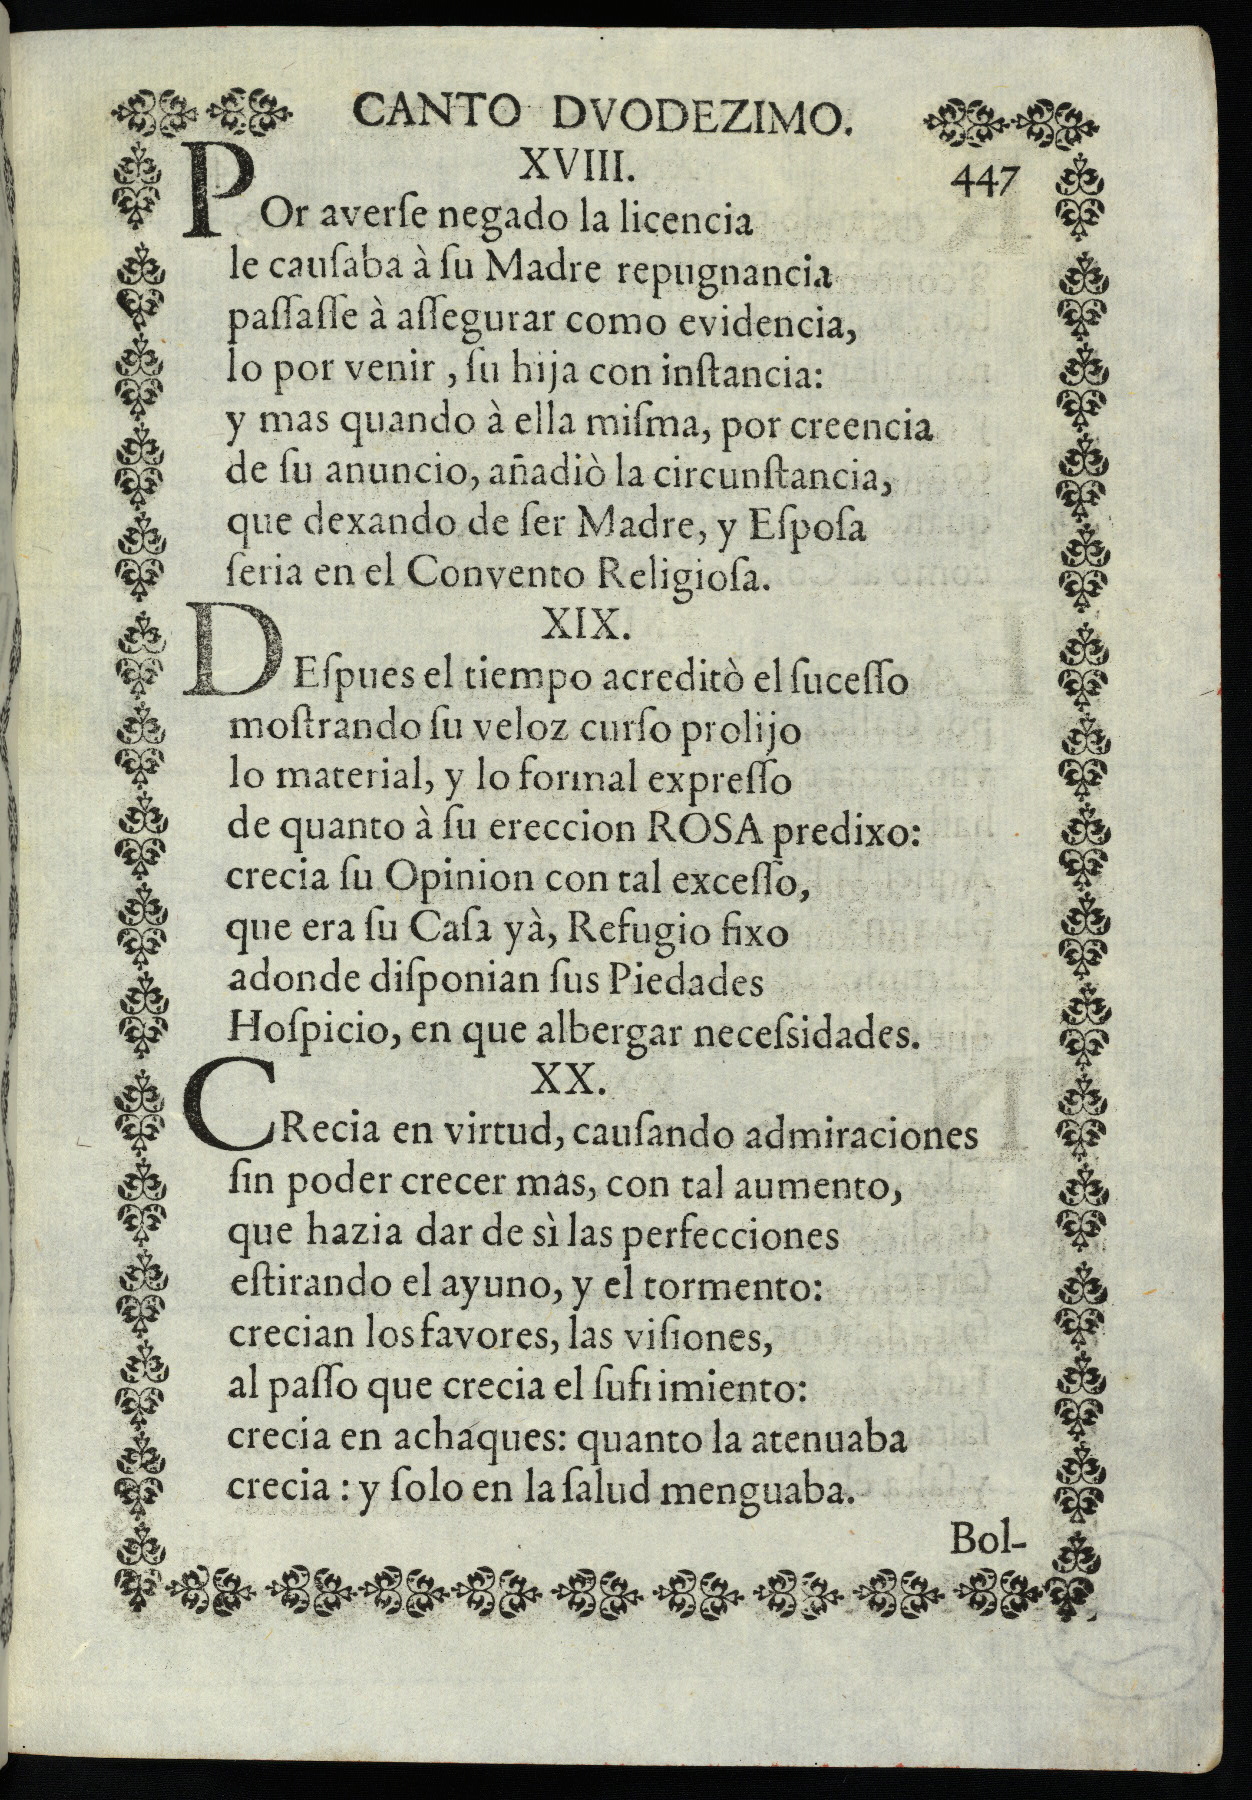 CANTO DVODEZIMO.
XVIII.
447
POr averſe negado la licencia
le cauſaba à ſu Madre repugnancia
paſſaſſe à aſſegurar como evidencia,
lo por venir, ſu hija con inſtancia:
y mas quando à ella miſma, por creencia
de ſu anuncio, añadiò la circunſtancia,
que dexando de ſer Madre, y Eſpoſa
ſeria en el Convento Religioſa.
XIX.
DEſpues el tiempo acreditò el ſuceſſo
moſtrando ſu veloz curſo prolijo
lo material, y lo formal expreſſo
de quanto à ſu ereccion ROSA predixo:
crecia ſu Opinion con tal exceſſo,
que era ſu Caſa yà, Refugio fixo
adonde diſponian ſus Piedades
Hoſpicio, en que albergar neceſsidades.
XX.
CRecia en virtud, cauſando admiraciones
ſin poder crecer mas, con tal aumento,
que hazia dar de sì las perfecciones
eſtirando el ayuno, y el tormento:
crecian los favores, las viſiones,
al paſſo que crecia el ſufrimiento:
crecia en achaques: quanto la atenuaba
crecia: y ſolo en la ſalud menguaba.
Bol-